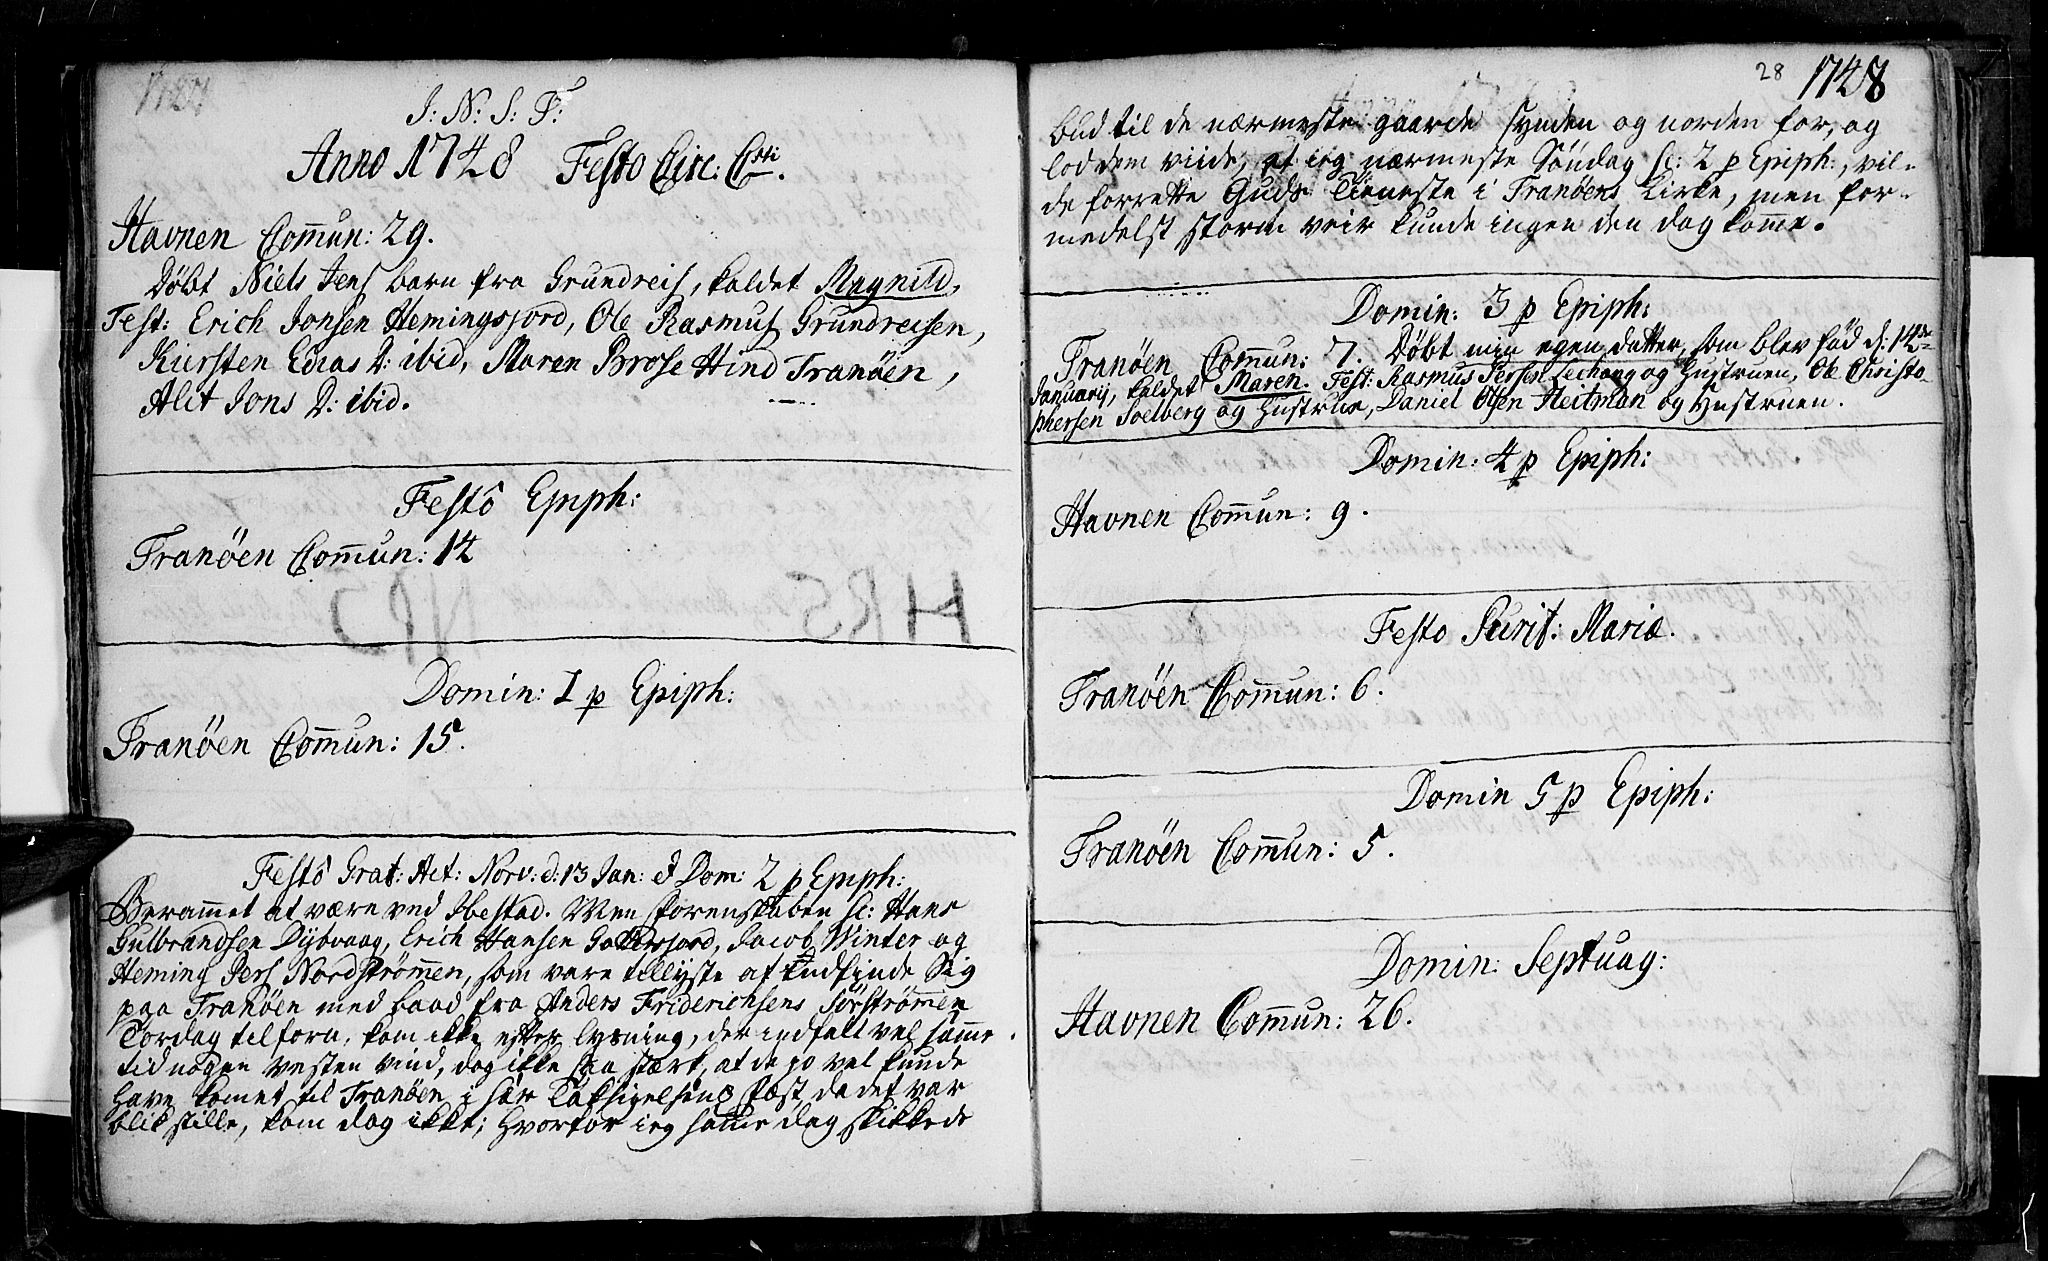 J: N: S: F:
Anno 1748 Festo Circ: Csti.
Havnen Com̅un: 29.
Døbt Niels Jens barn fra Grundreis, kaldet Magnild,
Test: Erich Jonsen Hemingsjord, Ole Rasmus Grundreisen,
Kiersten Edias D: ibid, Maren Brose Hind Tranöen,
Alit Jons D: ibid.
Festô Epiph:
Tranöen Com̅un: 14
HRS NPJ
Domin: 1 p Epiph:
Tranöen Com̅un: 15.
Festô Grat: Act: Norv: d: 13 Jan: & Dom: 2 p Epiph:
Beram̅et at være ved Ibestad. Men skorenskaben sc: Hans
Gulbrandsen Dybvaag, Erich Hansen Gaksfjord, Jacob Winter og
Heming Pers Nordstrøm̅en, som vare tillyste at indfinde Sig
paa Tranöen med baad fra Anders Friderichsens Sørstrøm̅en
Torsdag tilforn, kom ikke efter lysning, der indfalt vel sam̅e
tid nogen vesten vind, dog ikke saa stærk, at de jo vel kunde
have kom̅et til Tranöen, i sær Taksigelsens fæst, da det var
blik stille, kom dog ikke; hvorfor ieg sam̅e dag skikkede
28 1748
bud til de nærmeste gaarde synden og norden for, og
lod dem viide, at ieg nærmeste Söndag sc: 2 p Epiph:, vil-
de forrette Guds Tieneste i Tranöens Kirke, men for-
medelst storm veir kunde ingen den dag kom̅e.
Domin: 3 p Epiph:
Tranöen Com̅un: 7. Døbt min egen datter, som blev fød d: 14de
Januarij, kaldet Maren. Test: Rasmus Persen Lechang og Hustruen, Ole Christo-
phersen Soelberg og Hustrue, Daniel Olsen Heitman og Hustruen.
Domin: 4 p Epiph:
Havnen Com̅un: 9.
Festo Purif: Mariæ.
Tranöen Com̅un: 6.
Domin 5 p Epiph:
Tranöen Com̅un: 5.
Domin: Septuag:
Havnen Com̅un: 26.